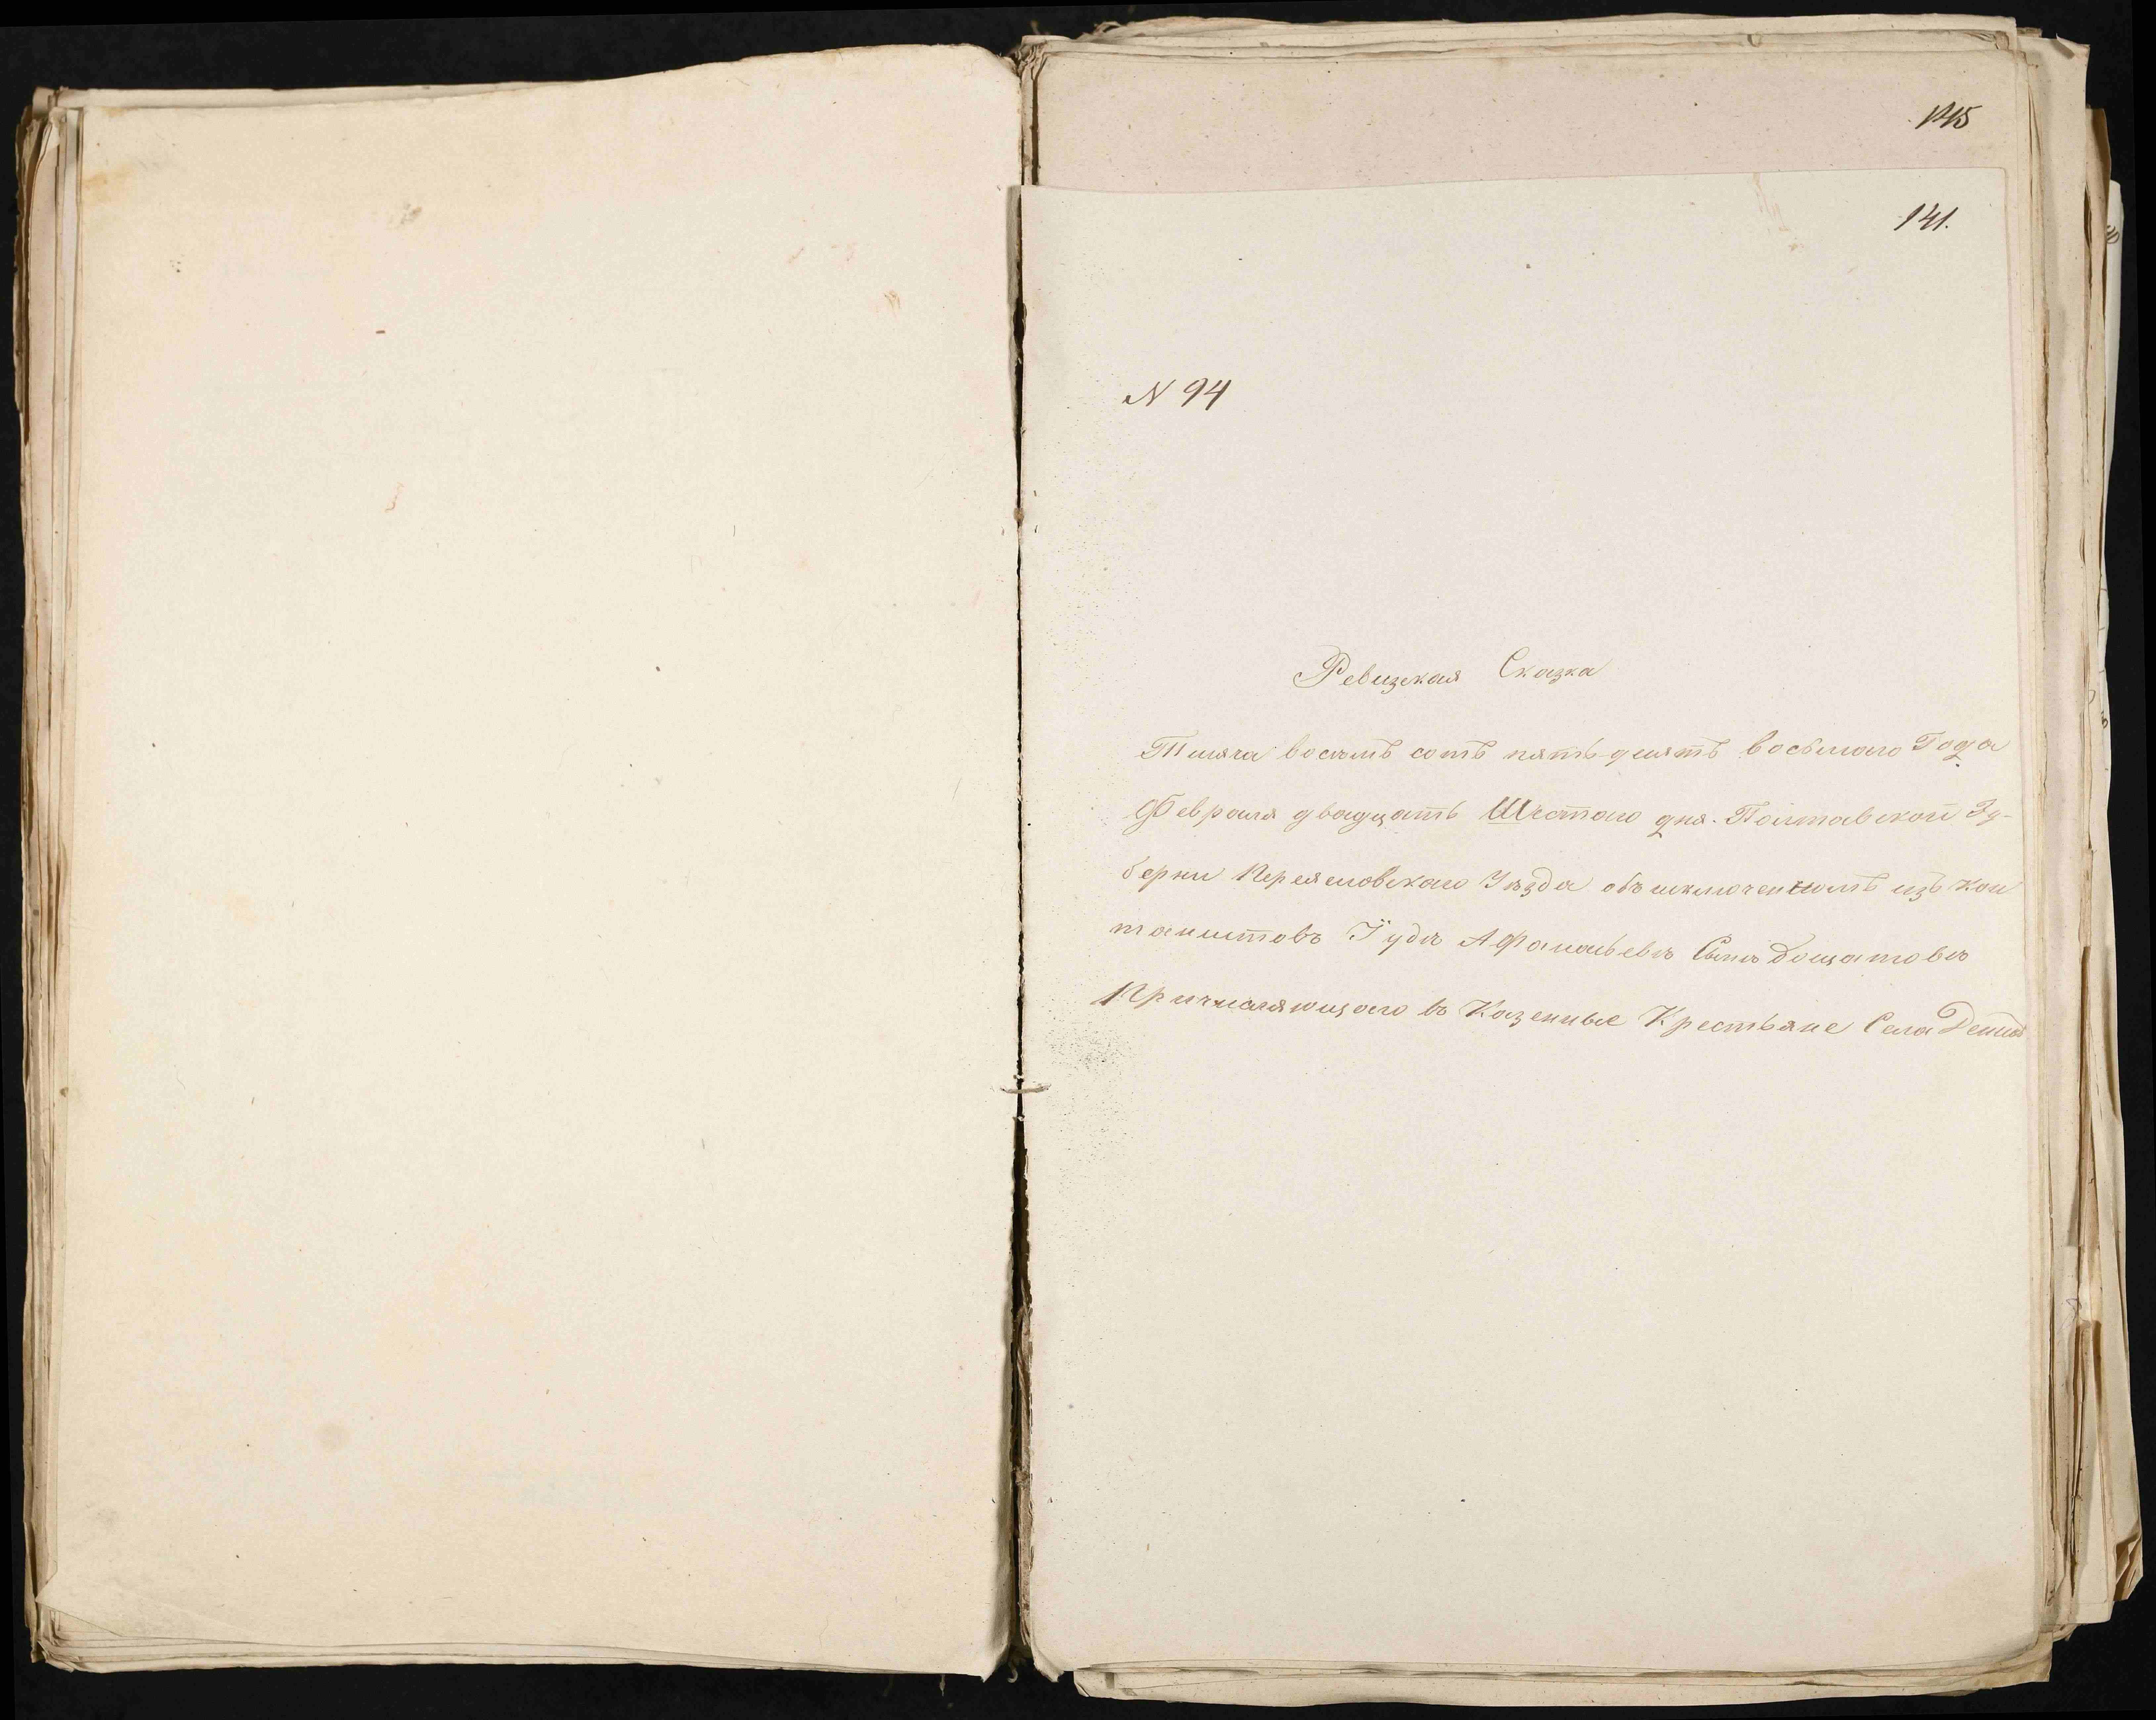 145
141.
N 94
Ревизская Сказка
Тысяча восемь сотъ пять-десятъ восьмаго Года
Февраля двадцать Шестаго дня. Полтавской Гу-
берни Переяславскаго Уѣзда объ исключенномъ изъ Кан
танистовъ Іуда Афанасьевъ Сынъ Дощатовъ
Причисляющаго въ Казенные Крестьяне Села